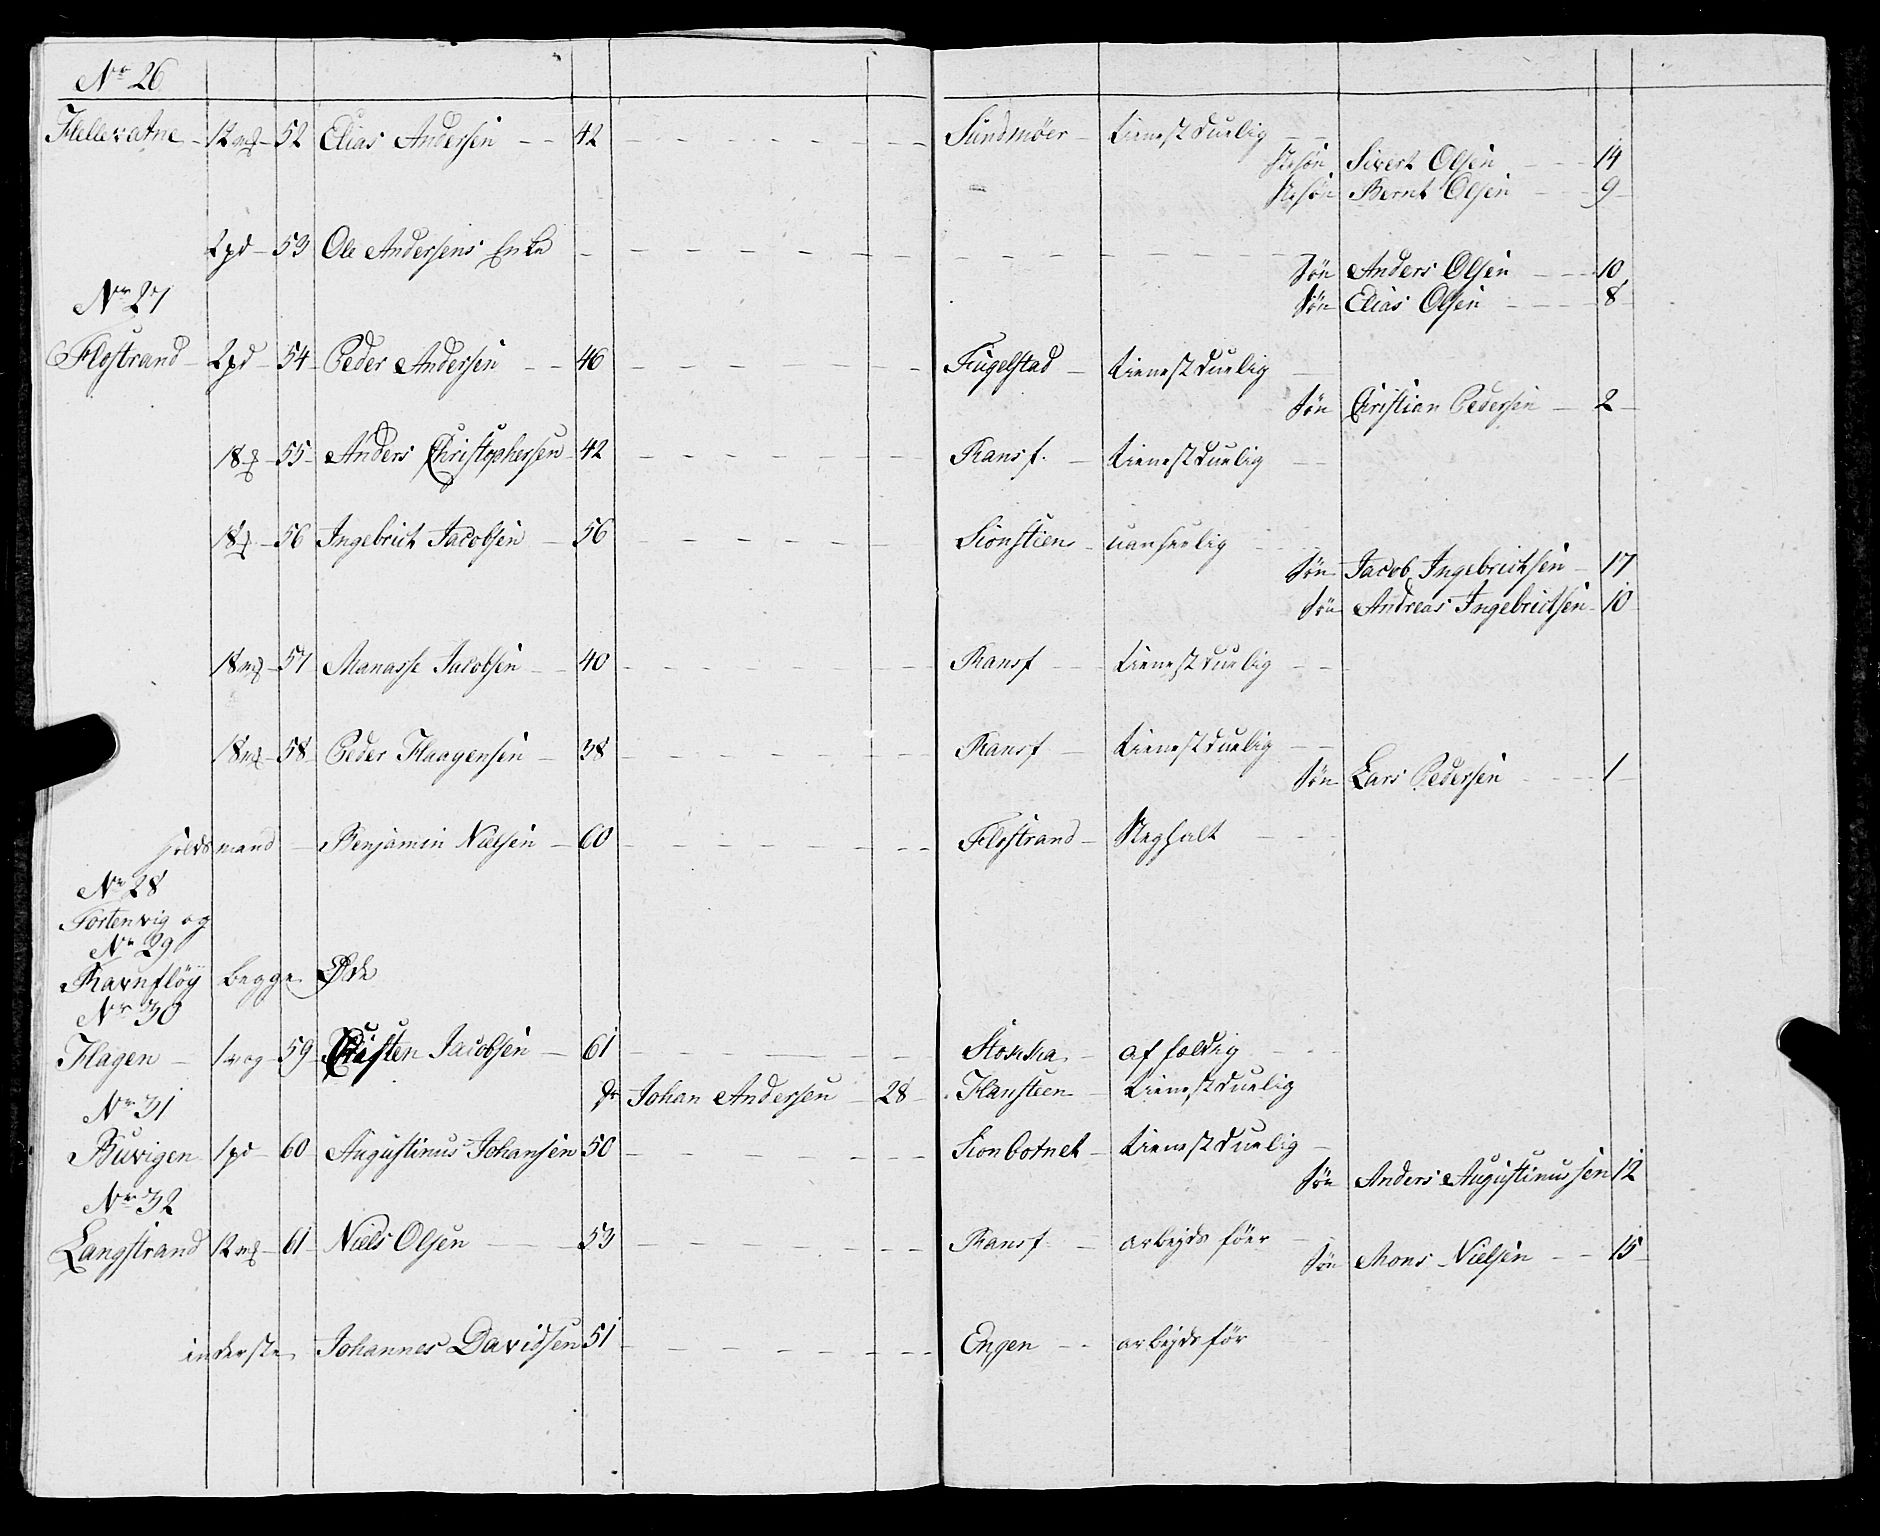 No 26
Hellevatne - 12 mk - 52 Elias Andersen - - 42 - Sundmøer - tienestduelig - -
Stsøn Sivert Olsen - - 14
Stsøn Bernt Olsen - - 9
2pd - 53 Ole Andersens Enke -
Søn Anders Olsen - - - 10
Søn Elias Olsen - - - 8
No 27
Flostrand - 2pd - 54 - Peder Andersen - - 46 - Fugelstad - tienestduelig -
Søn Christian Pedersen - 2 -
18 mk - 55 - Anders Christophersen - 42 - Ransf. - tienestduelig - -
18 mk - 56 Ingebrict Jacobsen - 56 - Sionstien - uanseelig
Søn Jacob Ingebrichsen - 17
Søn Andreas Ingebrictsen - 10
18 mk - 57 Manasse Jacobsen - 40 - Ransf - tienestduelig - -
18 mk - 58 - Peder Haagensen - 38 - Ransf - tienestduelig - -
Søn Lars Pedersen - - 1 -
mand - Benjamin Nielsen - 60 - Flostrand - Steghalt -
No 28
Fortenvig og
No 29
Ravnfløy begge Øde
No 30
Hagen - 1 vog - 59 - Christen Jacobsen - 61 - Stokka - affældig
Johan Andersen - 28 - Hansteen - tienestduelig
No 31
Buvigen 1pd - 60 Augustinus Johansen 50 - Sionbotnet - tienestduelig -
Søn Anders Augustinussen 12
No 32
Langstrand 12 mk - 61 - Niels Olsen - 53 - Ransf - arbejdsføer -
Søn Mons Nielsen - - 15 -
inderste Johannes Davidsen 51 - Engen - - arbejdsfør